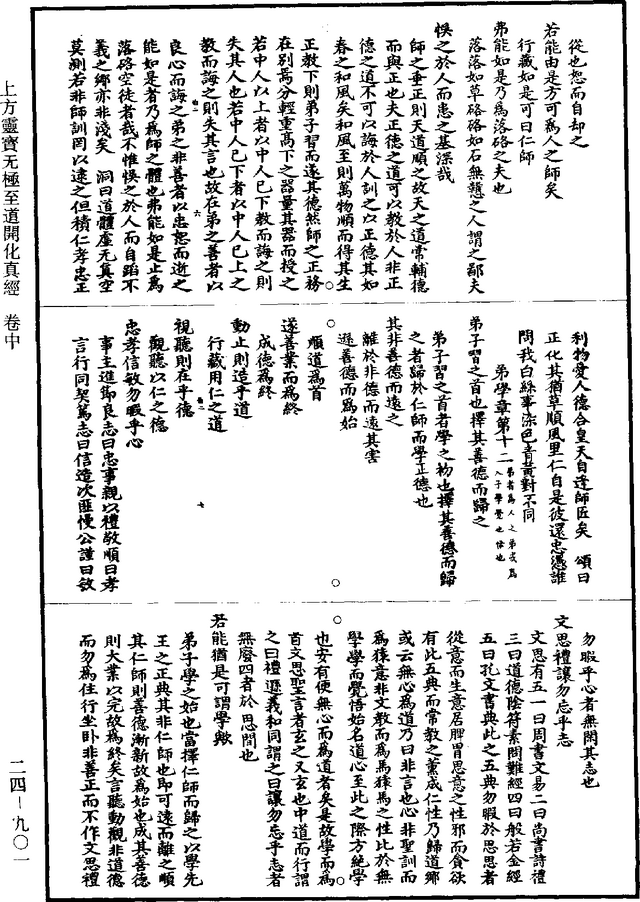 從也恕而自却之
若能由是方可為人之師矣
行藏如是可曰仁師
弗能如是乃為落硌之夫也
落落如草硌硌如石無慧之人謂之鄙夫
悞之於人而患之基深哉
師之垂正則天道順之故天之道常輔德
而與正也夫正德之道可以教於人非正
德之道不可以誨於人訓之以正德其如
春之和風矣和風至則萬物順而得其生
正教下則弟子習而遂其德然師之正務
在別焉分輕重高下之器量其器而授之
若中人以上者以中人已下教而誨之則
失其人也若中人已下者以中人已上之
教而誨之則失其言也故在弟之善者以
良心而誨之弟之非善者以忠恕而逝之
能如是者乃為師之體也弗能如是止為
落硌空徒者哉不惟悞之於人而自蹈不
義之鄉亦非淺矣 洞曰道體虛无真空
莫測若非師訓罔以遠之但積仁孝忠正
利物愛人德合皇天自逢師匠矣 頌曰
正化其猶草順風里仁自是彼還忠憑誰
問我白絲事染色青黃對不同
弟學章第十二弟者為人之弟或為人子學覺也悟也
弟子習之首也擇其善德而歸之
弟子習之首者學之初也擇其善德而歸
之者歸於仁師而學正德也
其非善德而遠之
離於非德而遠其害
遜善德而為始
順道為首
遂善業而為終
成德為終
動止則造乎道
行藏用仁之道
視聽則在乎德
觀聽以仁之德
忠孝信敏勿暇乎心
事主進即良志曰忠事親以禮敬順曰孝
言行同契篤志曰信造次匪慢公謹曰敏
勿暇乎心者無閑其志也
文思禮讓勿忘乎志
文思有五一曰周書文易二曰尚書詩禮
三曰道德陰符素問難經四曰般若金經
五曰孔文書典此之五典勿暇於思思者
從意而生意居脾胃思意之性邪而貪欲
有此五典而常教之薰成仁性乃歸道鄉
或云無心為道乃曰非言也心非聖訓而
為猿意非文教而為馬猿馬之性比於無
學學而覺悟始名道心至此之際方絕學
也安有便無心而為道者矣是故學而為
首文思聖言者玄之又玄也中道而行謂
之曰禮遜義和同謂之曰讓勿忘乎志者
無廢四者於思間也
若能猶是可謂學歟
弟子學之始也當擇仁師而歸之以學先
王之正典其非仁師也即可遠而離之順
其仁師則善德漸新故為始也成其善德
則大業以完故為終矣言聽動觀非道德
而勿為住行坐卧非善正而不作文思禮
上方靈寶无極至道開化真經 卷中
二四—九〇一